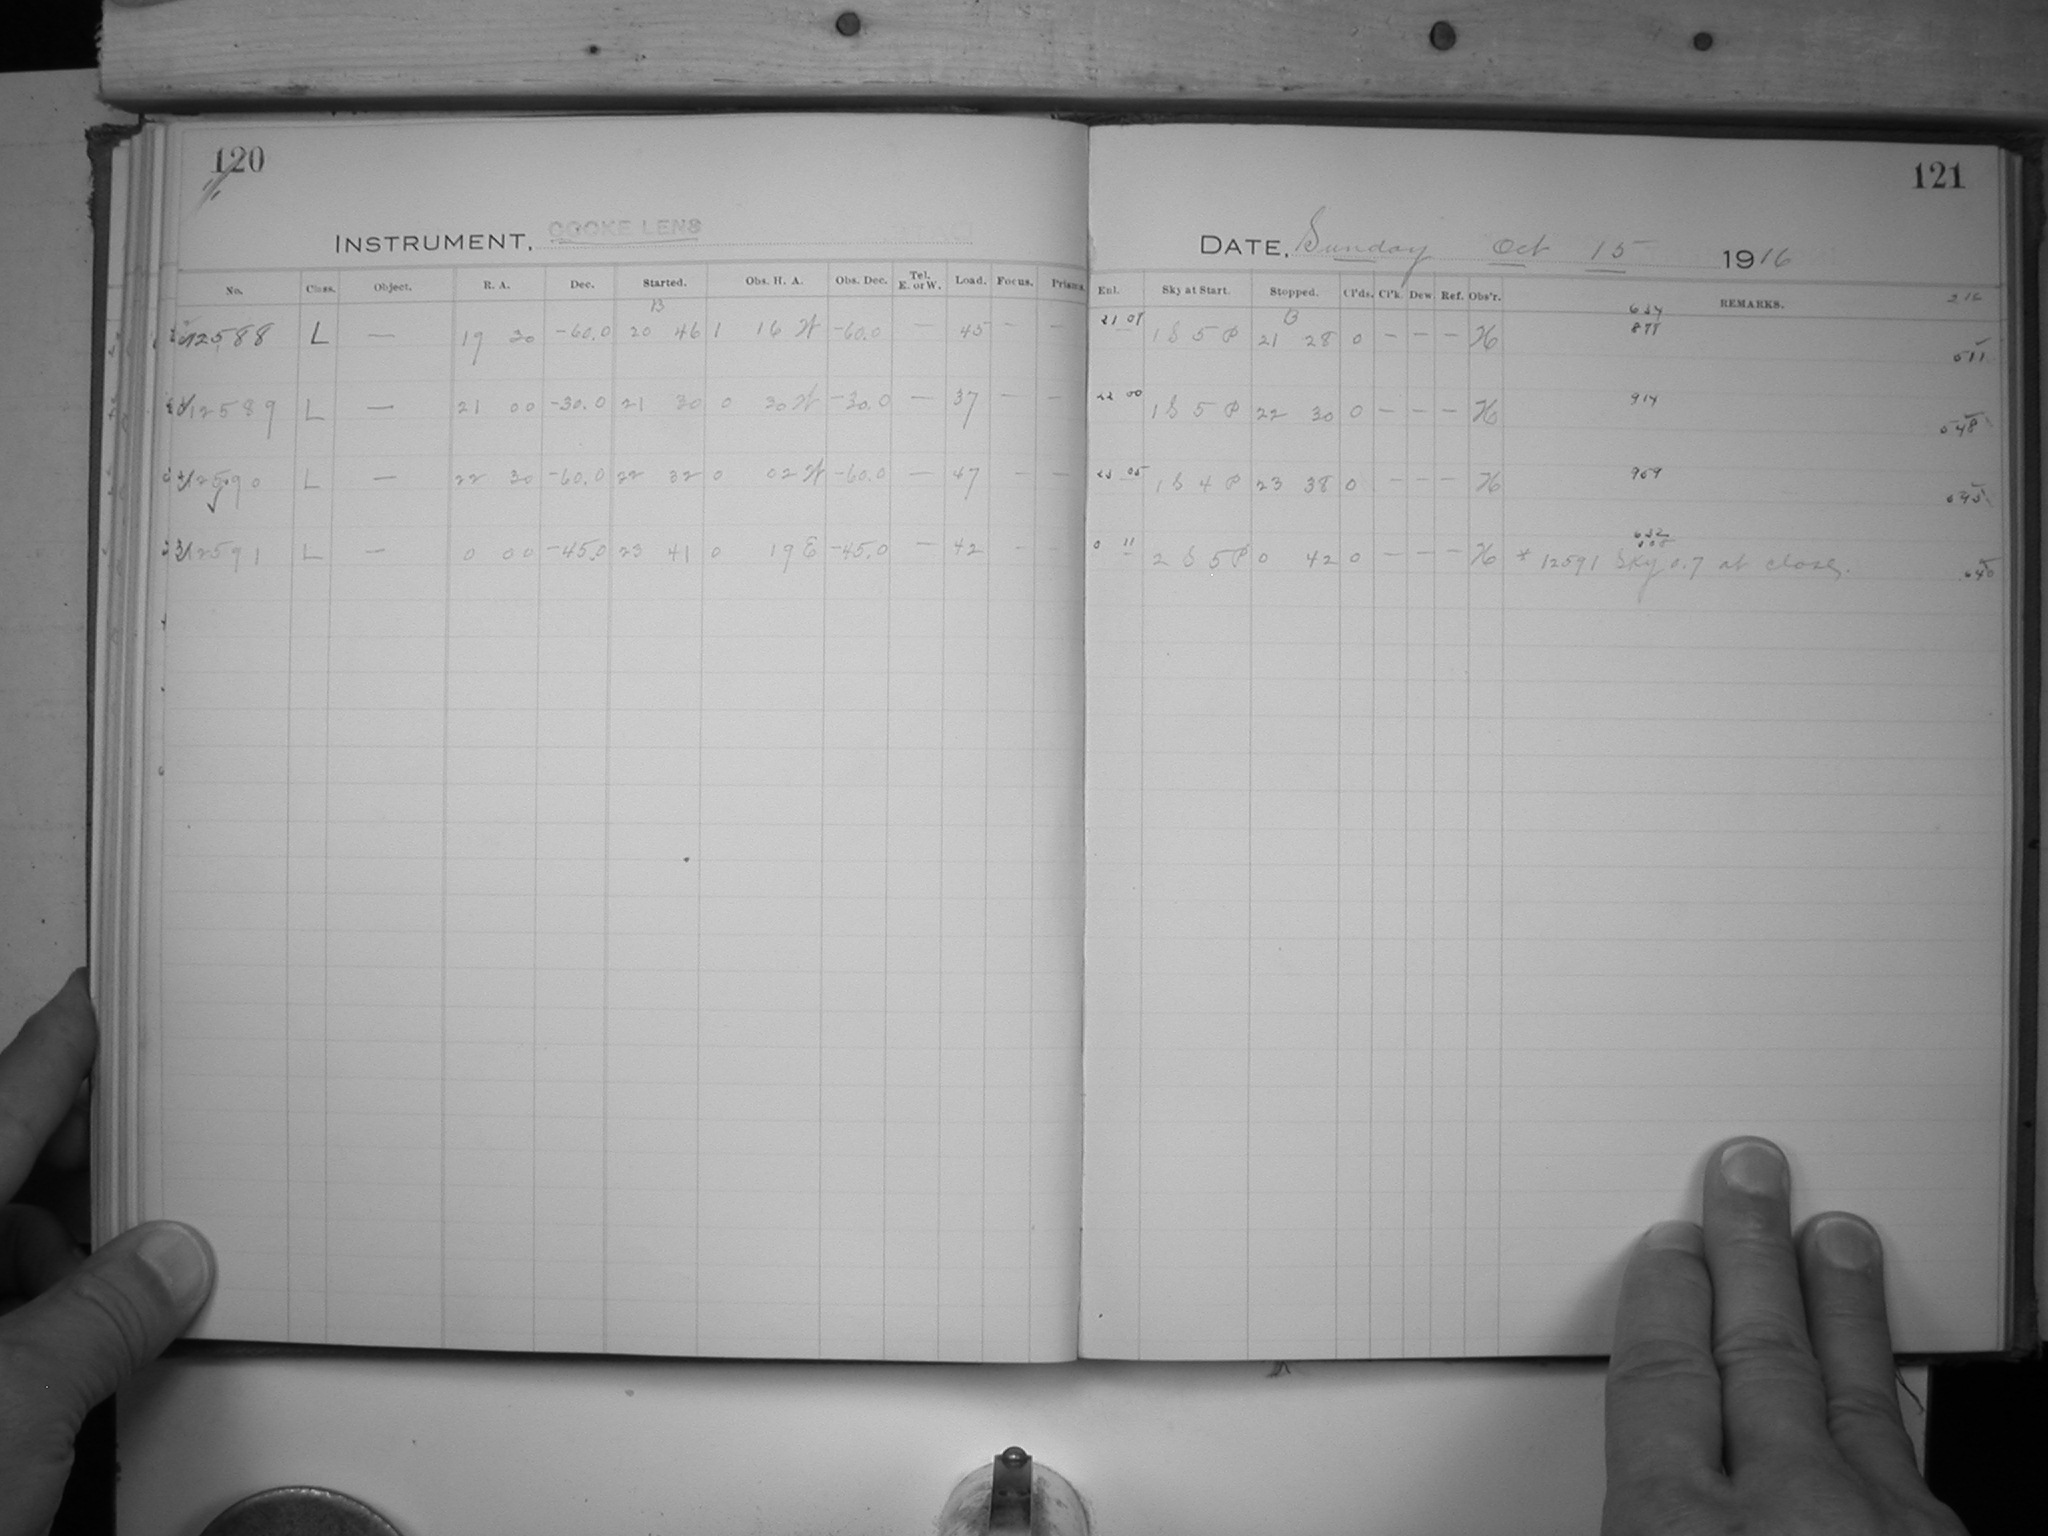 120
INSTRUMENT, COOKE LENS
No. Class. Object. R. A. Dec. Started. Obs. H. A. Obs. Dec. Tel. E. or W. Load. Focus. Prisms.
B
12588 L — 19 30 -60.0 20 46 1 16 W -60.0 — 45 — —
12589 L — 21 00 -30.0 21 30 0 30 W -30.0 — 37 — —
12590 L — 22 30 -60.0 22 32 0 02 W -60.0 — 47 — —
12591 L — 0 00 -45.0 23 41 0 19 E -45.0 — 42 — —
121
DATE, Sunday Oct 15 1916
Enl. Sky at Start. Stopped. Cl'ds. Cl'k. Dew. Ref. Obs'r. REMARKS.
B
1 S 5 P 21 28 0 — — — H
22 00 1 S 5 P 22 30 0 — — — H 914
23 05 1 S 4 P 23 38 0 — — — H 959
0 11 2 S 5 P 0 42 0 — — — H * 12591 Sky 0.7 at close.